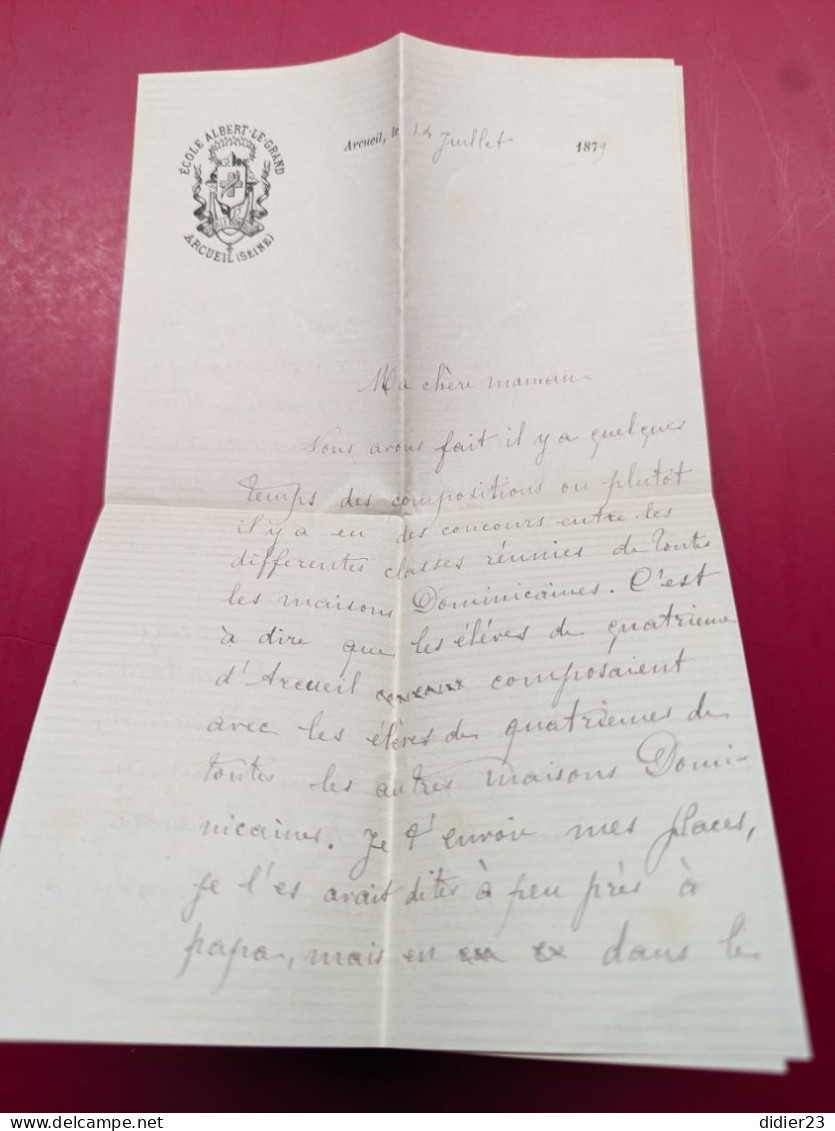 ÉCOLE ALBERT-LE-GRAND
ARCUEIL (SEINE)
Arcueil, le 12 Juillet 1879
Ma chère maman
Nous avons fait il y a quelques
temps des compositions ou plutôt
il y a eu des concours entre les
differentes classes réunies de toutes
les maisons Dominicaines. C'est
à dire que les élèves de quatrieme
d'Arcueil composaient
avec les élèves de quatrièmes de
toutes les autres maisons Domi-
nicaines. Je t'envoie mes places,
je l'es avait dites à peu près à
papa, mais en dans le
didier23